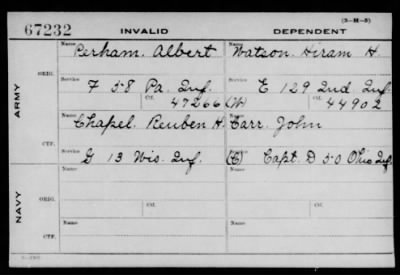 (3-H-5)
67232 INVALID DEPENDENT
Name Perham. Albert Name Watson. Hiram H.
ORIG.
Service F 58 Pa. Inf. Service E 129 Ind. Inf.
Ctf. 47266 (W) Ctf. 44902
ARMY
Name Chapel. Reuben H. Name Carr. John
CTF.
Service G 13 Wis. Inf. Service (C) Capt. D 50 Ohio Inf.
Name Name
ORIG. Ctf. Ctf.
NAVY
Name Name
CTF.